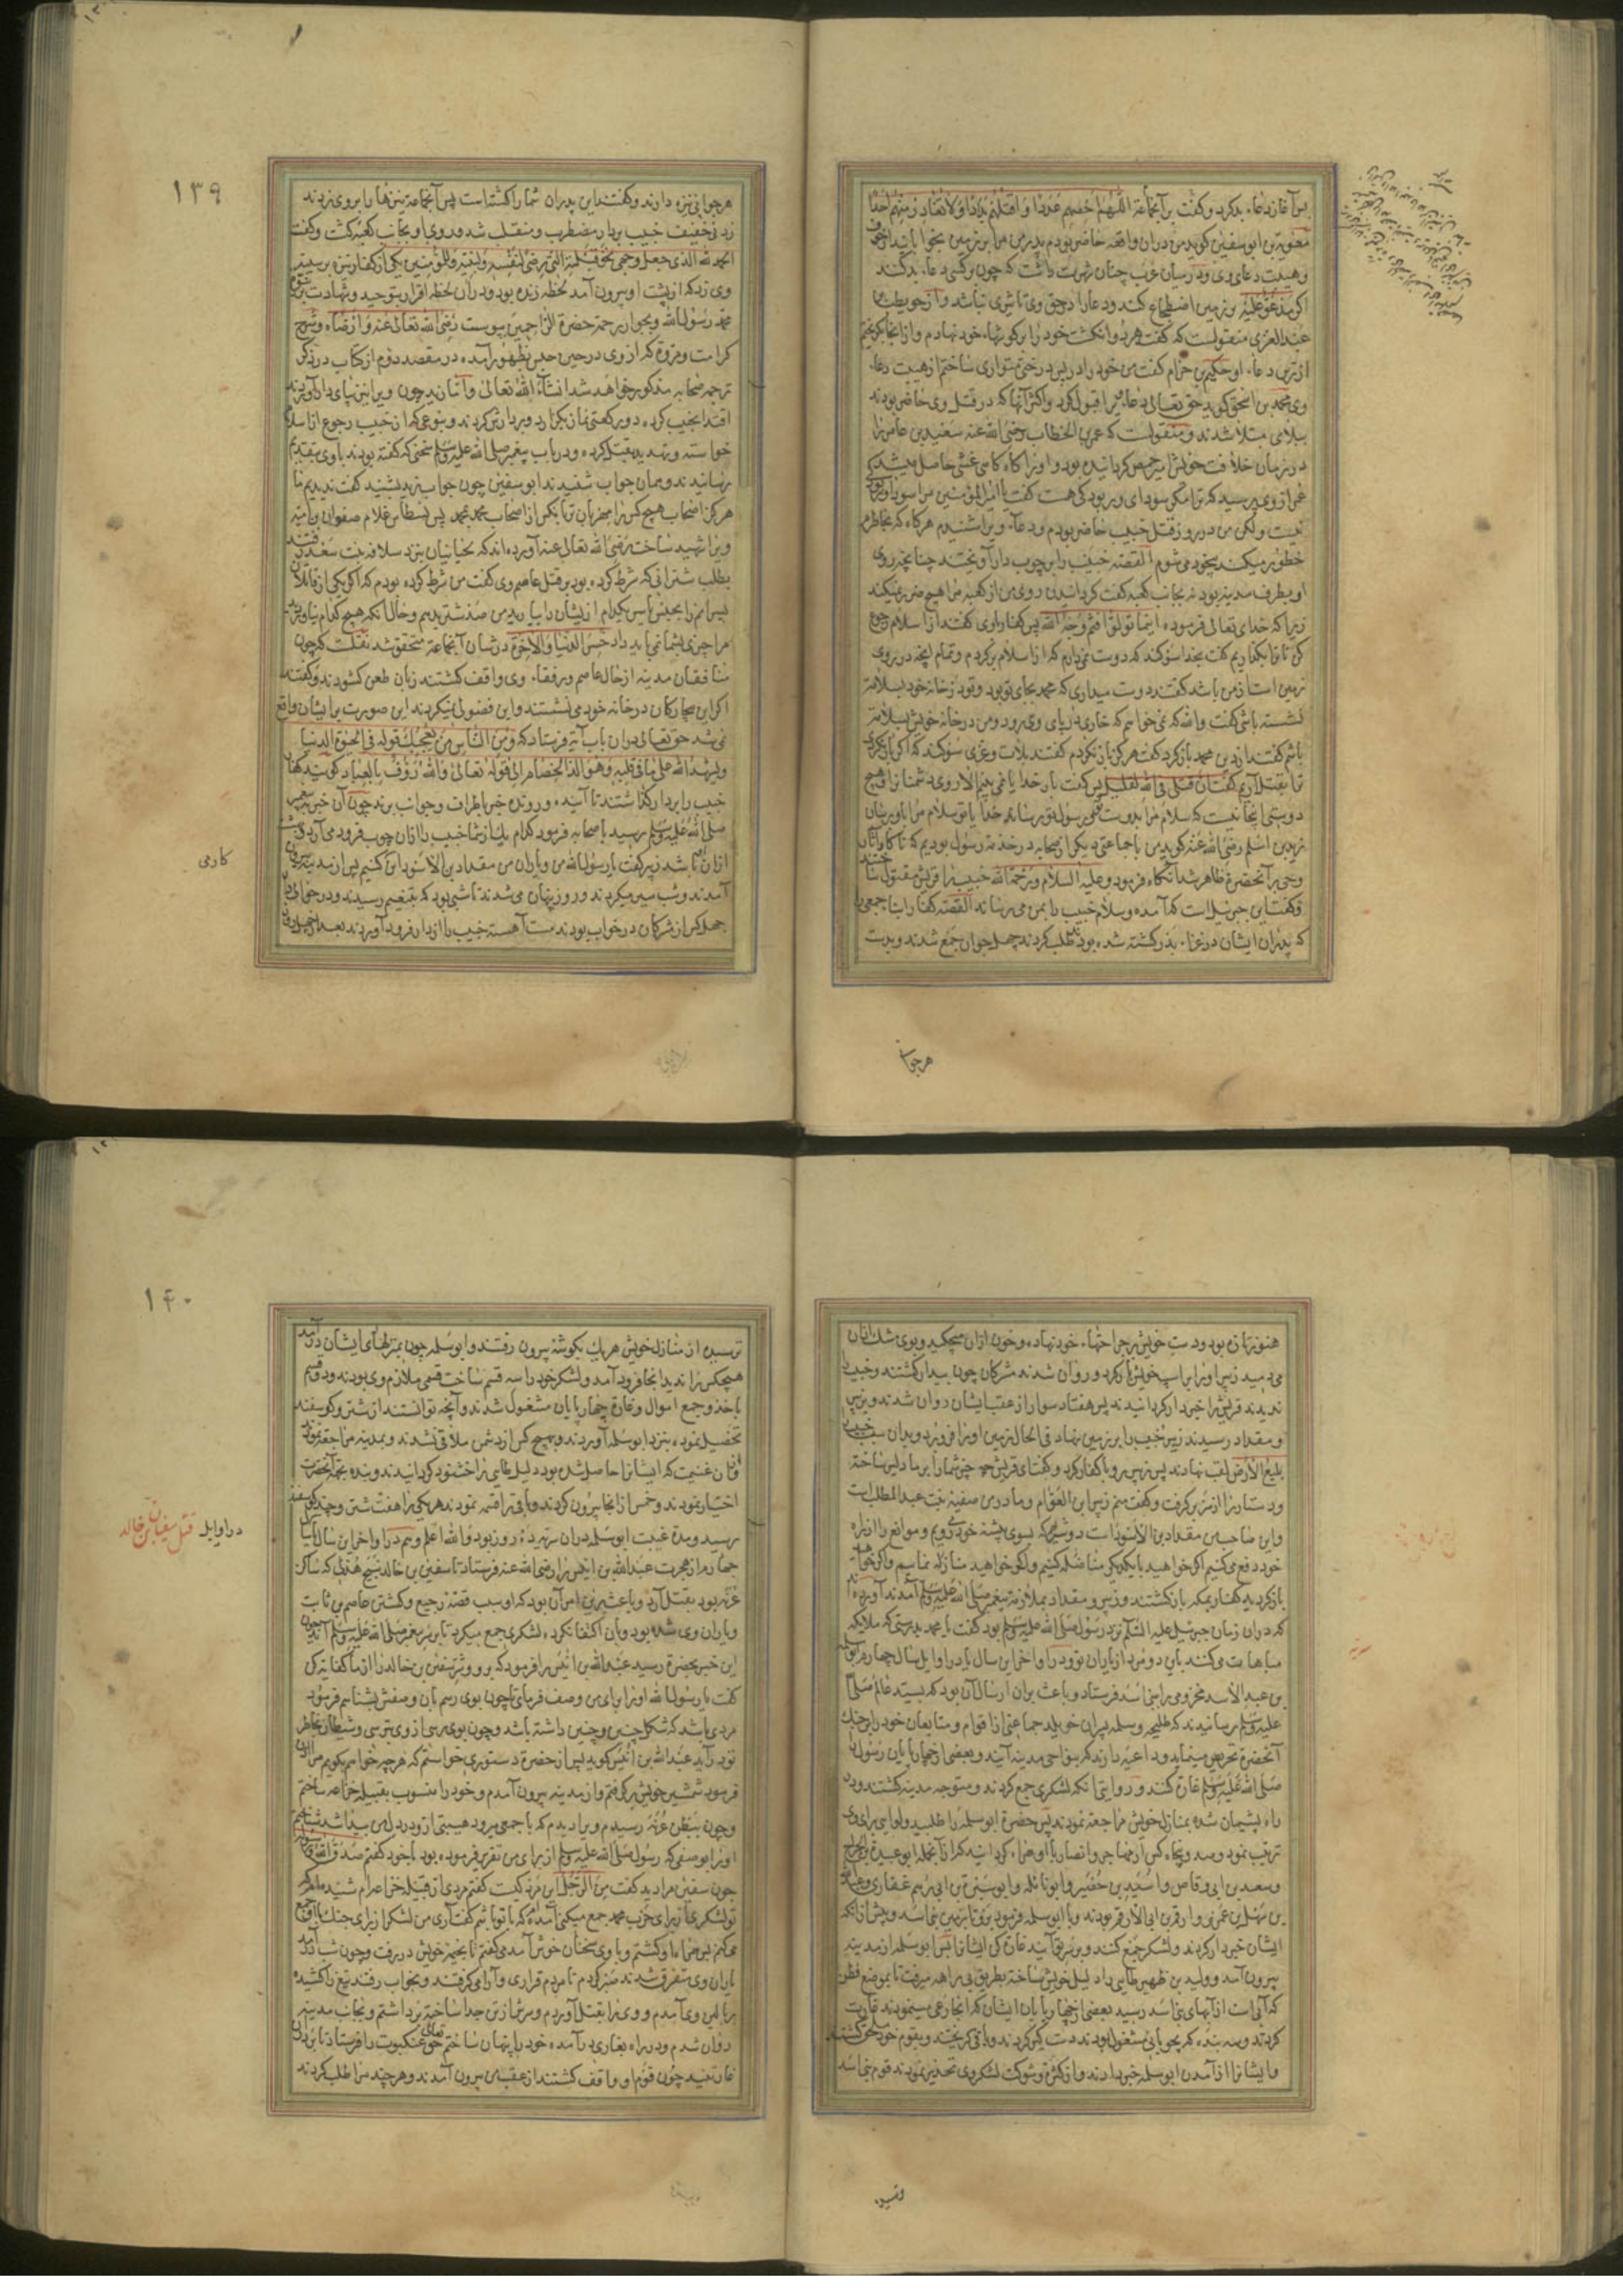 پس آغاز دعاء بد کرد و گفت بر آنجماعة اللهم احصهم عددا و اقتلهم بددا ولا تغادر منهم احدا
معویة بن ابوسفین گوید من دران واقعه حاضر بودم پدر من مرا بر زمین بخوابانید از خوف
و هیبت دعای وی و در میان عرب چنان شهرت داشت که چون بر کسی دعاء بد کنند
اگر مدعو علیه بر زمین اضطجاع کند و دعا را در حق وی تاثیری نباشد و از حویطب بن
عبد العزی منقولست که گفت هر دو انگشت خود را بر گوشهاء خود نهادم و از انجا بگریختم
از ترس دعاء او حکیم بن حزام گفت من خود را در پس درختی متواری ساختم از هیبت دعاء
وی محمد بن اسحق گوید حق تعالی دعاء ویرا قبول کرد و اکثر آنها که در قتل وی حاضر بودند
ببلائی مبتلا شدند و منقولست که عمر بن الخطاب رضی الله عنه سعید بن عامر را
در زمان خلافت خویش امیر حمص گردانیده بود و او را گاه گاهی غشی حاصل میشد
عمر از وی پرسید که ترا مگر سودای در بود کی هست گفت یا امیر المؤمنین مرا سودا و کوفتی
نیست ولکن من در روز قتل خبیب حاضر بودم و دعاء ویرا شنیدم هر گاه که بخاطرم
خطور میکند بیخود می شوم القصه خبیب را بر چوب دار آویختند چنانچه روی
او بطرف مدینه بود نه بجانب کعبه گفت گردانیدن روی من از کعبه مرا هیچ ضرر نمیکند
زیرا که خدای تعالی فرموده اینما تولوا فثم وجه الله پس کفار اوی گفتند از اسلام رجوع
کن تا ترا بگذاریم گفت بخدا سوگند که دوست نمی دارم که از اسلام برگردم و تمام آنچه در روی
زمین است از من باشد گفتند دوست میداری که محمد بجای تو بود و تو در خانه خود بسلامة
نشسته باشی گفت والله که نمی خواهم که خاری در پای وی رود و من در خانه خویش بسلامة
باشم گفتند از دین محمد بازگرد گفت هرگز باز نگردم گفتند بلات و عزی سوگند که اگر باز نگردی
ترا بقتل آریم گفت ان قتلی فی الله لقلیل پس گفت بار خدایا نمی بینم الا روی دشمنان و هیچ
دوستی اینجا نیست که سلام مرا بدوست تو رسول تو رساند خدایا تو سلام مرا باو برسان
زید بن اسلم رضی الله عنه گوید من با جماعتی دیگر از صحابه در خدمة رسول بودیم که ناگاه آثار
وحی بر آنحضرة ظاهر شد آنگاه فرمود و علیه السلام و رحمة الله خبیب را قریش مقتول ساختند
و گفت این جبرئیل است که آمده و سلام خبیب را بمن می رساند القصه کفار ابنا جمعی را
که پدران ایشان در غزاء بدر کشته شده بودند طلب کردند چهل جوان جمع شدند و بدست
هر جوانی
هر جوانی نیزه دادند و گفتند این پدران شما را کشته است پس آنجماعة نیزها را بر وی زدند
زدنی خفیف خبیب بر دار مضطرب و منقلب شد و روی او بجانب کعبه گشت و گفت
الحمد لله الذی جعل وجهی نحو قبلته التی رضی لنفسه و لنبیه و للمؤمنین یکی از کفار نیزه بر سینه
وی زد که از پشت او بیرون آمد لحظه زنده بود و دران لحظه اقرار بتوحید و شهادت نبوة
محمد رسول الله و بجوار رحمة حضرة الراحمین پیوست رضی الله تعالی عنه و ارضاه و شرح
کرامت و مروة که از وی در حین حبس بظهور آمده در مقصد دوم از کتاب در ذکر
ترجمه صحابه مذکور خواهد شد انشاء الله تعالی و اما زید چون ویرا نیز بپای دار آوردند
اقتدا بخبیب کرده دو رکعتی نماز بگزارد و بر دارش کردند و بنوعی که از خبیب رجوع از اسلام
خواسته و تهدید بقتل کرده و در باب پیغمبر صلی الله علیه وسلم سخنی که گفته بودند با وی بتقدیم
رسانیدند و همان جواب شنیدند ابوسفین چون جواب زید بشنید گفت ندیدیم ما
هرگز اصحاب هیچ کس را مهربان تر با نکس از اصحاب محمد بمحمد پس نسطاس غلام صفوان بن امیة
ویرا شهید ساخت رضی الله تعالی عنه آورده اند که لحیانیان نزد سلافه بنت سعد رفتند
بطلب شترانی که شرط کرده بود بر قتل عاصم وی گفت من شرط کرده بودم که اگر یکی از قاتلان
پسرانم را بحبس یا سر یکدام از ایشان را بیارید من صد شتر بدهم و حالا آنکه هیچ کدام نیاوردید
مرا چیزی بشما نمی باید داد خسر الدنیا و الاخرة در شان آنجماعة متحقق شد نقلست که چون
منافقان مدینه از حال عاصم و رفقاء وی واقف گشتند زبان طعن گشودند و گفتند
اگر این بیچارگان در خانه خود می نشستند و این فضولی نمیکردند این صورت بر ایشان واقع
نمی شد حق تعالی دران باب آیة فرستاد که ومن الناس من یعجبك قوله فی الحیوة الدنیا
ویشهد الله علی ما فی قلبه وهو الد الخصام الی قوله تعالی والله رؤف بالعباد گویند کفار
خبیب را بر دار گذاشتند تا آینده و رونده خبر باطراف و جوانب برند چون آن خبر به پیغمبر
صلی الله علیه وسلم رسید با صحابه فرمود کدام یك از شما خبیب را ازان چوب فرود می آرد
ازان باشد زبیر گفت یا رسول الله من و یار من مقداد بن الاسود این کنیم پس از مدینه بیرون
آمدند و شب سیر میکردند و روز پنهان می شدند تا شبی بود که بتنعیم رسیدند و در حوالی دار
چهل کس از مشرکان در خواب بودند مست آهسته خبیب را از دار فرود آوردند بعد از چهل روز
۱۳۹
کارمی
هنوز تازه بود و دست خویش بر جراحتهاء خود نهاده و خون ازان میچکید و بوی مشك ازان
می دمید زبیر او را بر اسپ خویش بار کرد و روان شدند مشرکان چون بیدار گشتند و خبیب را
ندیدند قریش را خبردار گردانیدند پس هفتاد سوار از عقب ایشان روان شدند و بزبیر
و مقداد رسیدند زبیر خبیب را بر زمین نهاد فی الحال زمین او را فرو برد و بدان سبب خبیب را
بلیع الارض لقب نهادند پس زبیر رو با کفار کرد و گفت ای قریش چه چیز شما را بر ما دلیر ساخته
و دستار را از سر بر گرفت و گفت منم زبیر ابن العوام و مادر من صفیه بنت عبد المطلب است
و این صاحب من مقداد بن الاسود است دو شیریم که بسوی بیشه خود می رویم و موانع را از راه
خود دفع می کنیم اگر خواهید با یکدیگر مناضله کنیم و اگر خواهید منازله نماییم و اگر خواهید
بازگردید کفار بمکه بازگشتند و زبیر و مقداد بملازمة پیغمبر صلی الله علیه وسلم آمدند آورده اند
که دران زمان جبرئیل علیه السلام نزد رسول صلی الله علیه وسلم بود گفت یا محمد بدرستی که ملایکه
مباهات می کنند باین دو مرد از یاران تو و در اواخر این سال یا در اوایل سال چهارم ابوسلمه
بن عبد الاسد مخزومی را ببنی اسد فرستاد و باعث بران ارسال آن بود که بسید عالم صلی الله
علیه وسلم رسانیدند که طلیحه و سلمه پسران خویلد جماعتی از اقوام و متابعان خود را بر جنك
آنحضرة تحریص مینمایند و داعیه دارند که بنواحی مدینه آیند و بعضی از چهارپایان رسول
صلی الله علیه وسلم غارة کنند و روایتی آنکه لشکری جمع کردند و متوجه مدینه گشتند و در
راه پشیمان شده بمنازل خویش مراجعة نمودند پس حضرة ابوسلمه را طلبید و لوایی برای وی
ترتیب نمود و صد و پنجاه کس از مهاجر و انصار با او همراه گردانید که از آنجمله ابوعبیدة بن الجراح
و سعد بن ابی وقاص و اسید بن حضیر و ابونائله و ابوسبرة بن ابی رهم غفاری و عبدالله
بن سهیل بن عمرو و ارقم بن ابی الارقم بودند و با ابوسلمه فرمود برو تا بزمین بنی اسد و پیش ازانکه
ایشان خبردار گردند و لشکر جمع کنند و بر سر تو آیند غارة کن ایشانرا پس ابوسلمه از مدینه
بیرون آمد و ولید بن ظهیر طایی را دلیل خویش ساخته بطریق بی راهه میرفت تا بموضع قطن
که آبی است از آبهای بنی اسد رسید بعضی از چهارپایان ایشان که انجا رعی مینمودند غارت
کردند و سه بنده که بچوپانی مشغول بودند دستگیر کردند و باقی گریختند و بقوم خود ملحق گشتند
و ایشانرا از آمدن ابوسلمه خبر دادند و از کثرة و شوکت لشکر وی تحذیر نمودند قوم بنی اسد
ترسیده از منازل خویش هر یك بگوشه بیرون رفتند و ابوسلمه چون بمنزلهای ایشان درآمد
هیچکس را ندید انجا فرود آمد و لشکر خود را سه قسم ساخت قسمی ملازم وی بودند و دو قسم
باخذ و جمع اموال و غارة چهارپایان مشغول شدند و آنچه توانستند از شتر و گوسفند
تحصیل نموده بنزد ابوسلمه آوردند و بهیچ کس از دشمن ملاقی نشدند و بمدینه مراجعه نمودند
و ازان غنیمت که ایشانرا حاصل شده بود دلیل طایی را خشنود گردانیدند و بنده بجهة آنحضرت
اختیار نمودند و خمس از انجا بیرون کردند و باقی را قسمة نمودند هر یکی را هفت شتر و چند گوسفند
رسید و مدة غیبت ابوسلمه دران سریه ده روز بود والله اعلم و هم در اواخر این سال یا سال
چهارم از هجرت عبد الله بن انیس را رضی الله عنه فرستاد تا سفین بن خالد بن نبیح هذلی که ساکن
عرنه بود بقتل آرد و باعث برین امر آن بود که او سبب قصه رجیع و کشتن عاصم بن ثابت
و یاران وی شده بود و بان اکتفا نکرده لشکری جمع میکرد تا بر سر پیغمبر صلی الله علیه وسلم آید چون
این خبر بحضرة رسید عبد الله بن انیس را فرمود که برو و شر سفین بن خالد را از ما کفایة کن
گفت یا رسول الله او را برای من وصف فرمای تا چون بوی رسم بان وصفش بشناسم فرمود
مردی باشد که شکل چنین و چنین داشته باشد و چون بوی رسی از وی بترسی و شیطان بخاطر
تو درآید عبد الله بن انیس گوید پس از حضرة دستوری خواستم که هر چه خواهم بگویم مرا اذن
فرمود شمشیر خویش بر گرفتم و از مدینه بیرون آمدم و خود را منسوب بقبیله خزاعه ساختم
و چون ببطن عرنه رسیدم ویرا دیدم که با جمعی میرود هیبتی از و در دل من پیدا شد شناختم
او را بوصفی که رسول صلی الله علیه وسلم از برای من تقریر فرموده بود با خود گفتم صدق الله و رسوله
چون سفین مرا دید گفت من الرجل این مرد کیست گفتم مردی از قبیله خزاعه ام شنیده ام که
تو لشکری از برای حرب محمد جمع میکنی آمده ام که با تو باشم گفت آری من لشکر از برای جنك با او جمع
می کنم پس همراه او گشتم و با وی سخنان خوش آمد می گفتم تا بخیمه خویش در رفت و چون شب درآمد
یاران وی متفرق شدند صبر کردم تا مردم قراری و آرامی گرفتند و بخواب رفتند تیغ را کشیده
ببالین وی آمدم و وی را بقتل آوردم و سرش از تن جدا ساخته برداشتم و بجانب مدینه
روان شدم و در راه بغاری درآمده خود را پنهان ساختم حق تعالی عنکبوت را فرستاد تا بر در آن
غار تنید چون قوم او واقف گشتند از عقب من بیرون آمدند و هر چند مرا طلب کردند
۱۴۰
در اوایل قتل سفیان بن خالد
ترسیده